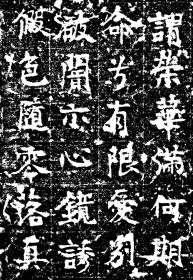 謂榮華滿何期
命兮有限愛別
破闇示心鏡誘
假色隨零落真